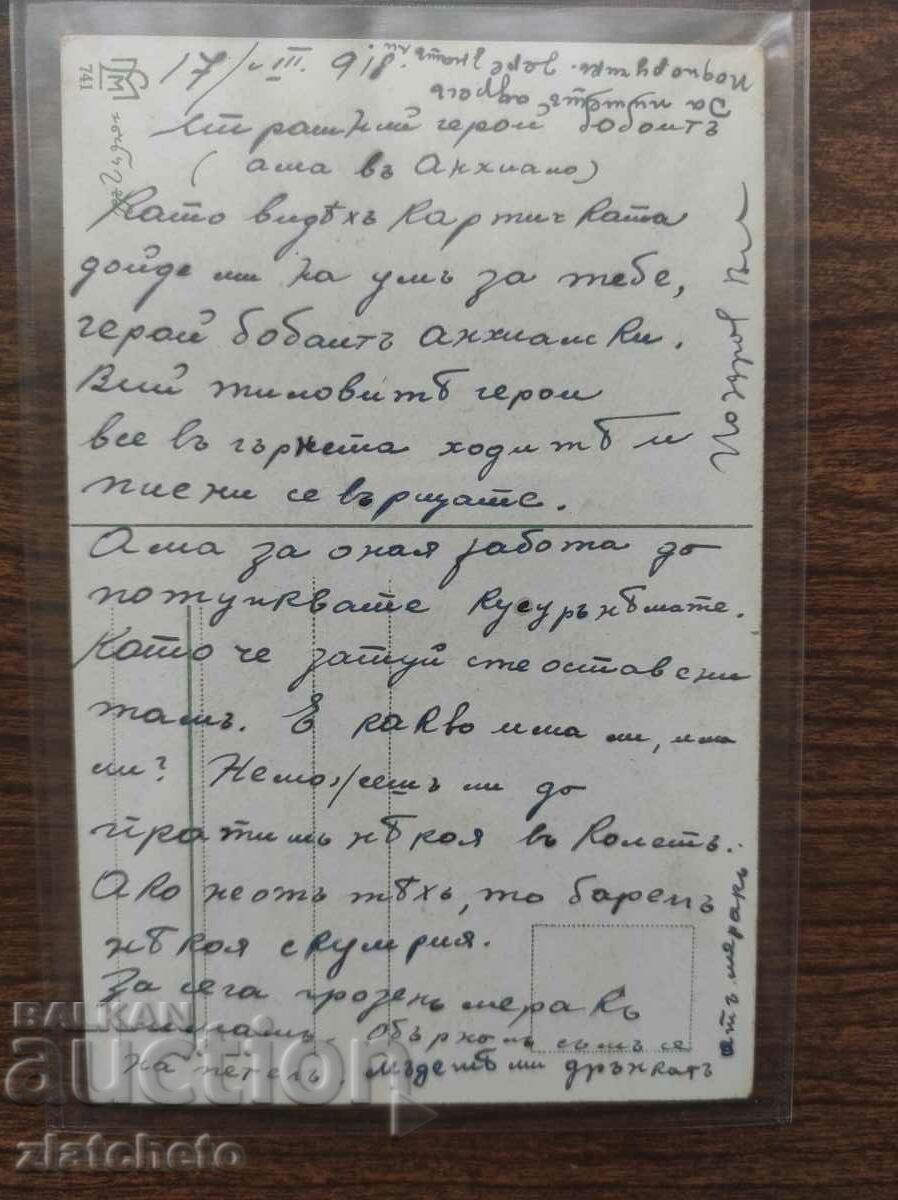 741
17/VIII. 918
Страшний герой бобаитъ
(ама въ Анхиало)
Като видѣхъ картичката
дойде ми на умъ за тебе,
герой бобаитъ анхиалски.
Вий жиловитѣ герои
все въ гърнета ходитѣ и
писни се връщате.
Ама за оная работа да
потупквате кусуръ нѣмате.
Като че затуй сте оставени
тамъ. Е какво има ли, има
ли? Неможешъ ли да
пратишъ нѣкоя въ колетъ.
Ако не отъ тѣхъ, то баремъ
нѣкоя скумрия.
За сега грозенъ меракъ
имамъ. Обърналъ съмъ се
на петелъ, мъдетѣ ми дрънкатъ
отъ меракъ
Поздрав
BALKAN
auction
zlatcheto